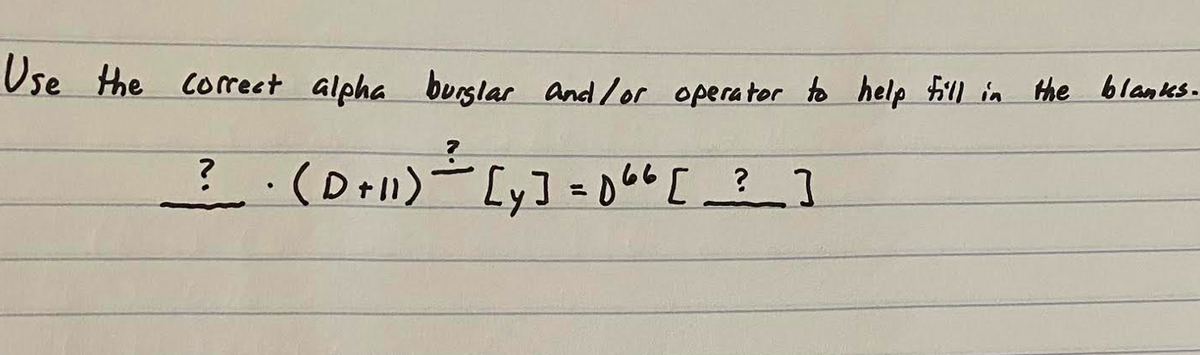 Use the correct alpha burglar and/or operator to help fill in the blanks.
? · (D+11)^? [y] = D^66 [ ? ]